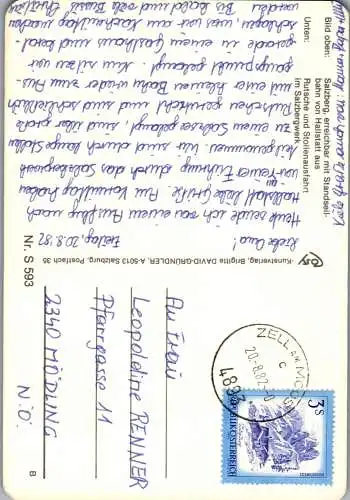 Bild oben: Salzberg, erreichbar mit Standseil-
bahn von Hallstatt aus
Unten: Rutsche und Stollenausfahrt
im Salzbergwerk
Freitag, 20.8.82
Liebe Oma!
Heute sende ich von einem Ausflug nach
Hallstatt liebe Grüße. Am Vormittag haben
wir eine Führung durch das Salzbergwerk
mitgenommen. Wir sind durch lange Stollen
zu einem Salzsee gelangt und über große
Rutschen gerutscht und sind schließlich
mit einer kleinen Bahn wieder zum Aus-
gangspunkt gelangt. Nun sitzen wir
gerade in einem Gasthaus und
Kunstverlag, Brigitte DAVID-GRÜNDLER, A-5013 Salzburg, Postfach 35
Nr. S 593
An Frau
Leopoldine RENNER
Pfarrgasse 11
2340 MÖDLING
N.Ö.
B
ZELL AM MOOS
20.-8.82-
c
4893
3 S
REPUBLIK ÖSTERREICH